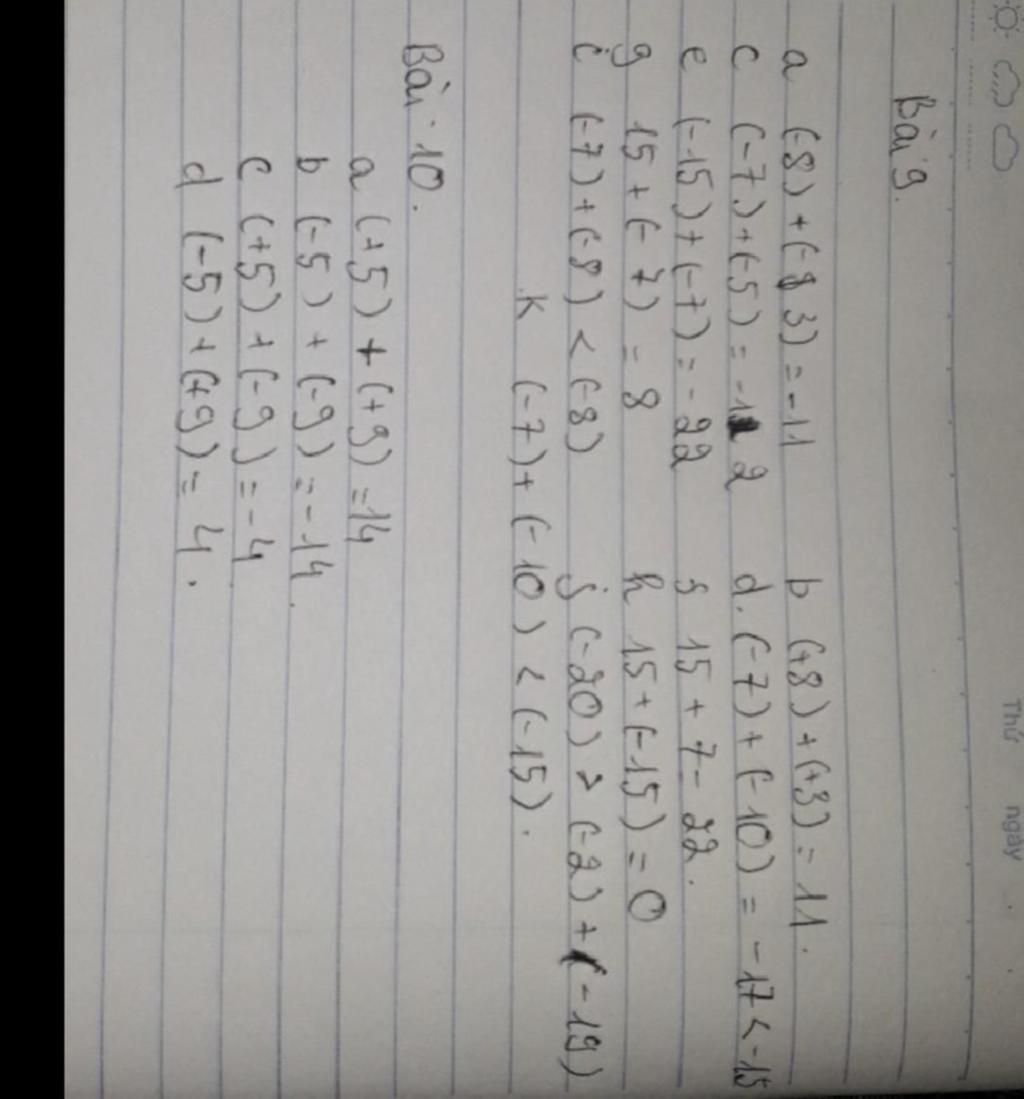 Thứ ngày
Bài 9.
a (-8) + (-3) = -11 b (+8) + (+3) = 11.
c (-7) + (-5) = -12 d. (-7) + (-10) = -17 < -15
e (-15) + (-7) = -22 f 15 + 7 = 22.
g 15 + (-7) = 8 h 15 + (-15) = 0
i (-7) + (-8) < (-8) j (-20) > (-2) + (-19)
k (-7) + (-10) < (-15).
Bài 10.
a (+5) + (+9) = 14
b (-5) + (-9) = -14.
c (+5) + (-9) = -4
d (-5) + (+9) = 4.